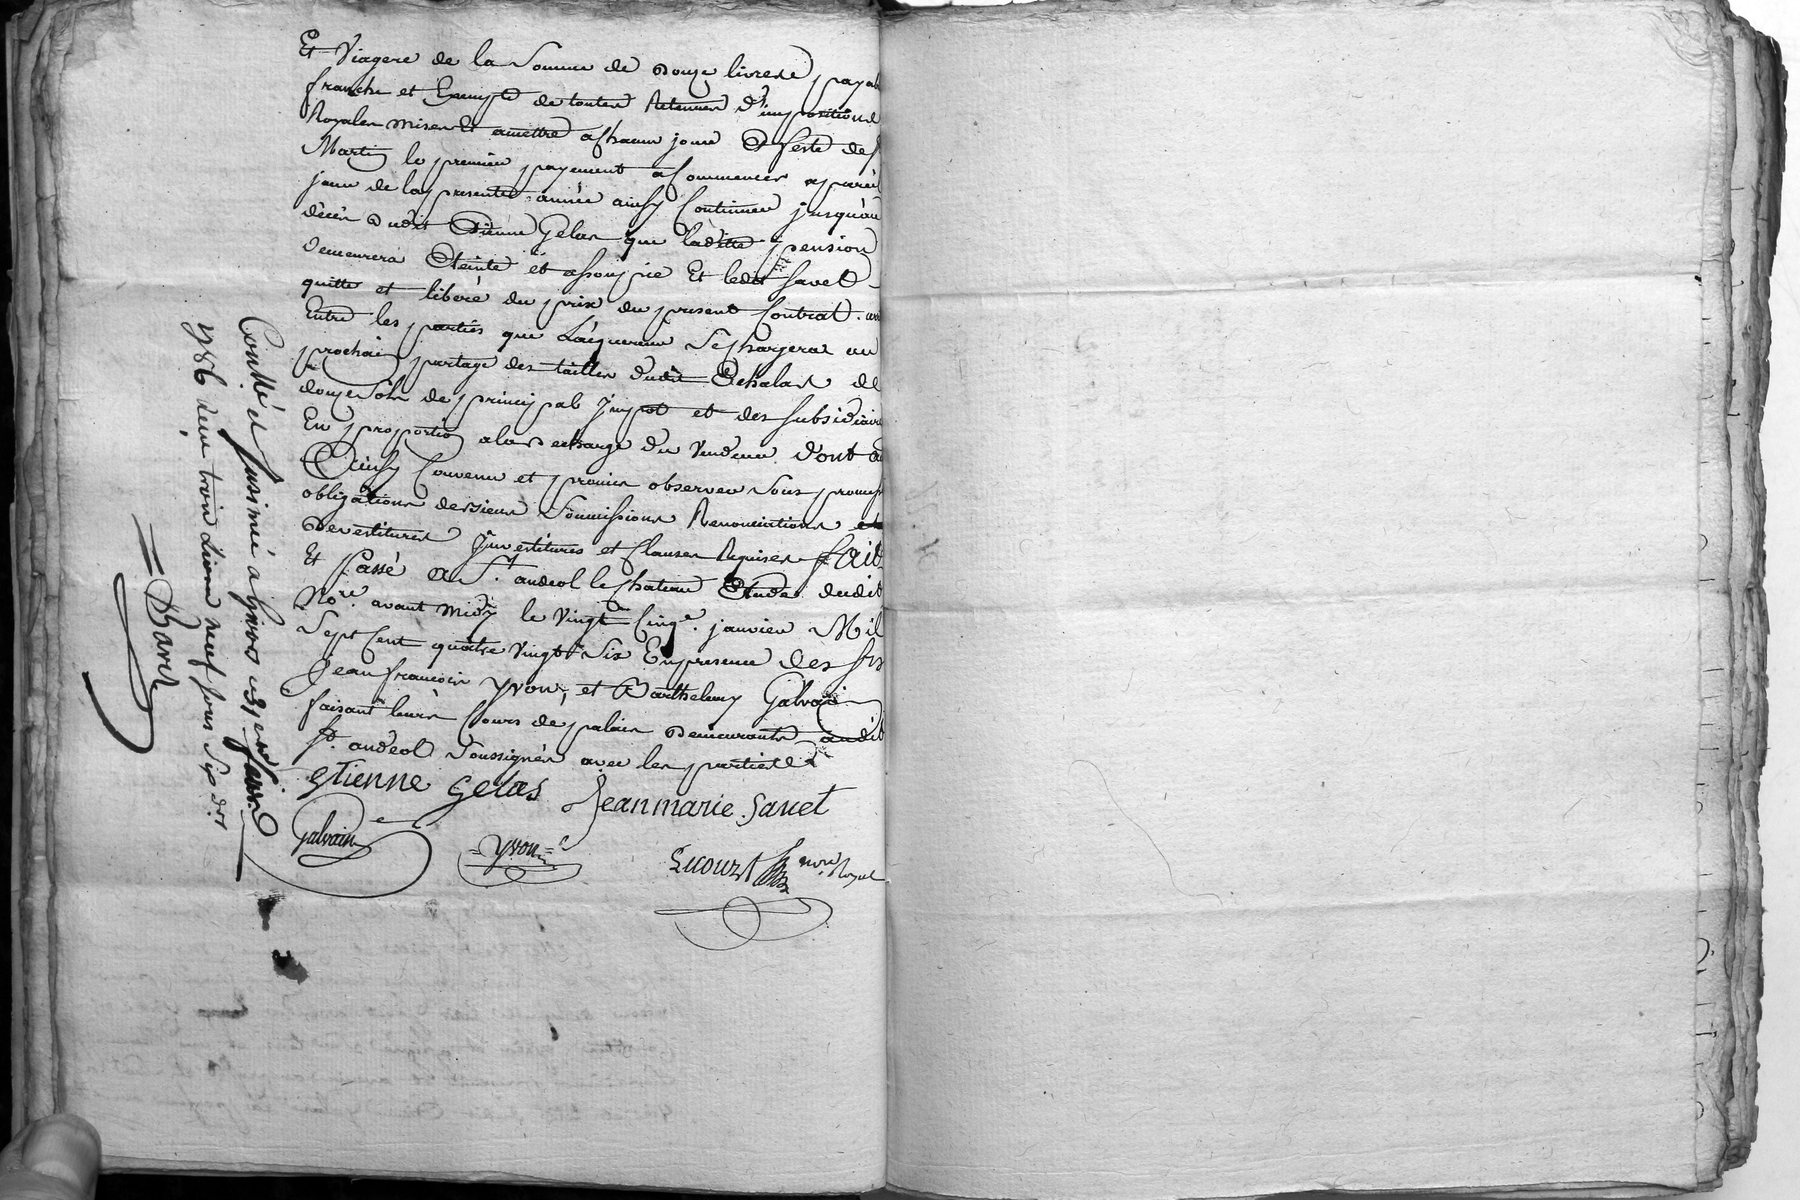 Et Viagere de la Somme de douze livres payab
franche et Exempte de toutes Retenues d'impositions
Royales mises Et amettre a chacun jour et feste de st
Martin le premier payement a Commencer a pareil
jour de la presente année ainsy Continuer jusqu'au
décès dudit Etienne Gelas que laditte pension
demeurera Eteinte et assoupie Et ledit Savet
quitte et libéré du prix du present Contrat
Entre les parties que L'aquereur Se chargera au
prochain partage des tailles dudit Echalas de
douze sols de principal Impot et des subsidiaires
En proportion a la décharge du Vendeur dont a
Ainsy Convenu et promis observer sous
obligations de Soumissions Renonciations
devestitures Investitures et Clauses Requises fait
Et Passé a St. andeol le Chateau Etude dudit
No.re avant midy le Vingt Cinqe. janvier Mil
Sept Cent quatre Vingt Six En presence des srs
Jean francois Yvon, et Barthelemy Galvain
faisant leurs Cours de palais demeurants audit
St. andeol Soussignés avec les parties
etienne Gelas Jean marie. Savet
Galvain Yvon
Lecourt no.re Royal
Controllé et Insinué a Givors le 31 janv.
1786 Reçu trois livres neuf sous Six d.rs
Barel